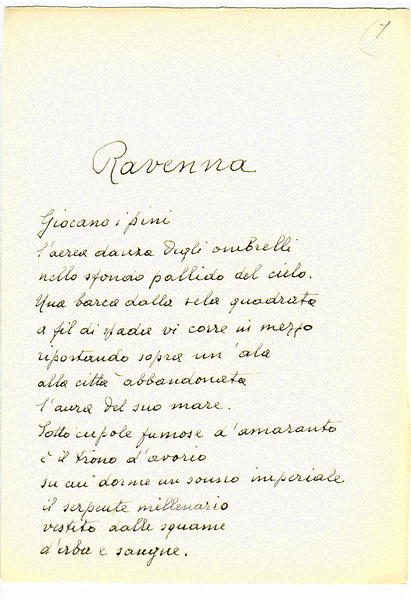 1
Ravenna
Giocano i pini
l'aerea danza degli ombrelli
nello sfondo pallido del cielo.
Una barca dalla vela quadrata
a fil di spada vi corre in mezzo
riportando sopra un'ala
alla città abbandonata
l'aura del suo mare.
Sotto cupole fumose d'amaranto
è il trono d'avorio
su cui dorme un sonno imperiale
il serpente millenario
vestito dalle squame
d'erba e sangue.